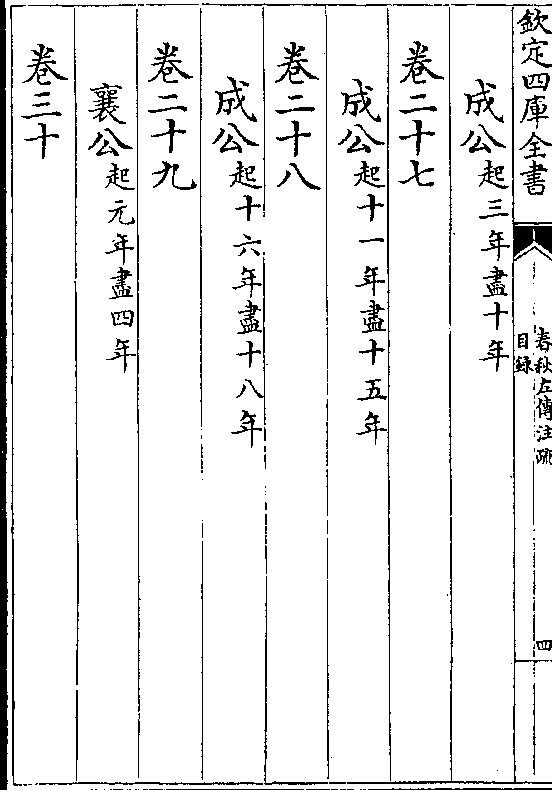 欽定四庫全書
春秋左傳注疏
目録
四
成公起三年盡十年
卷二十七
成公起十一年盡十五年
卷二十八
成公起十六年盡十八年
卷二十九
襄公起元年盡四年
卷三十